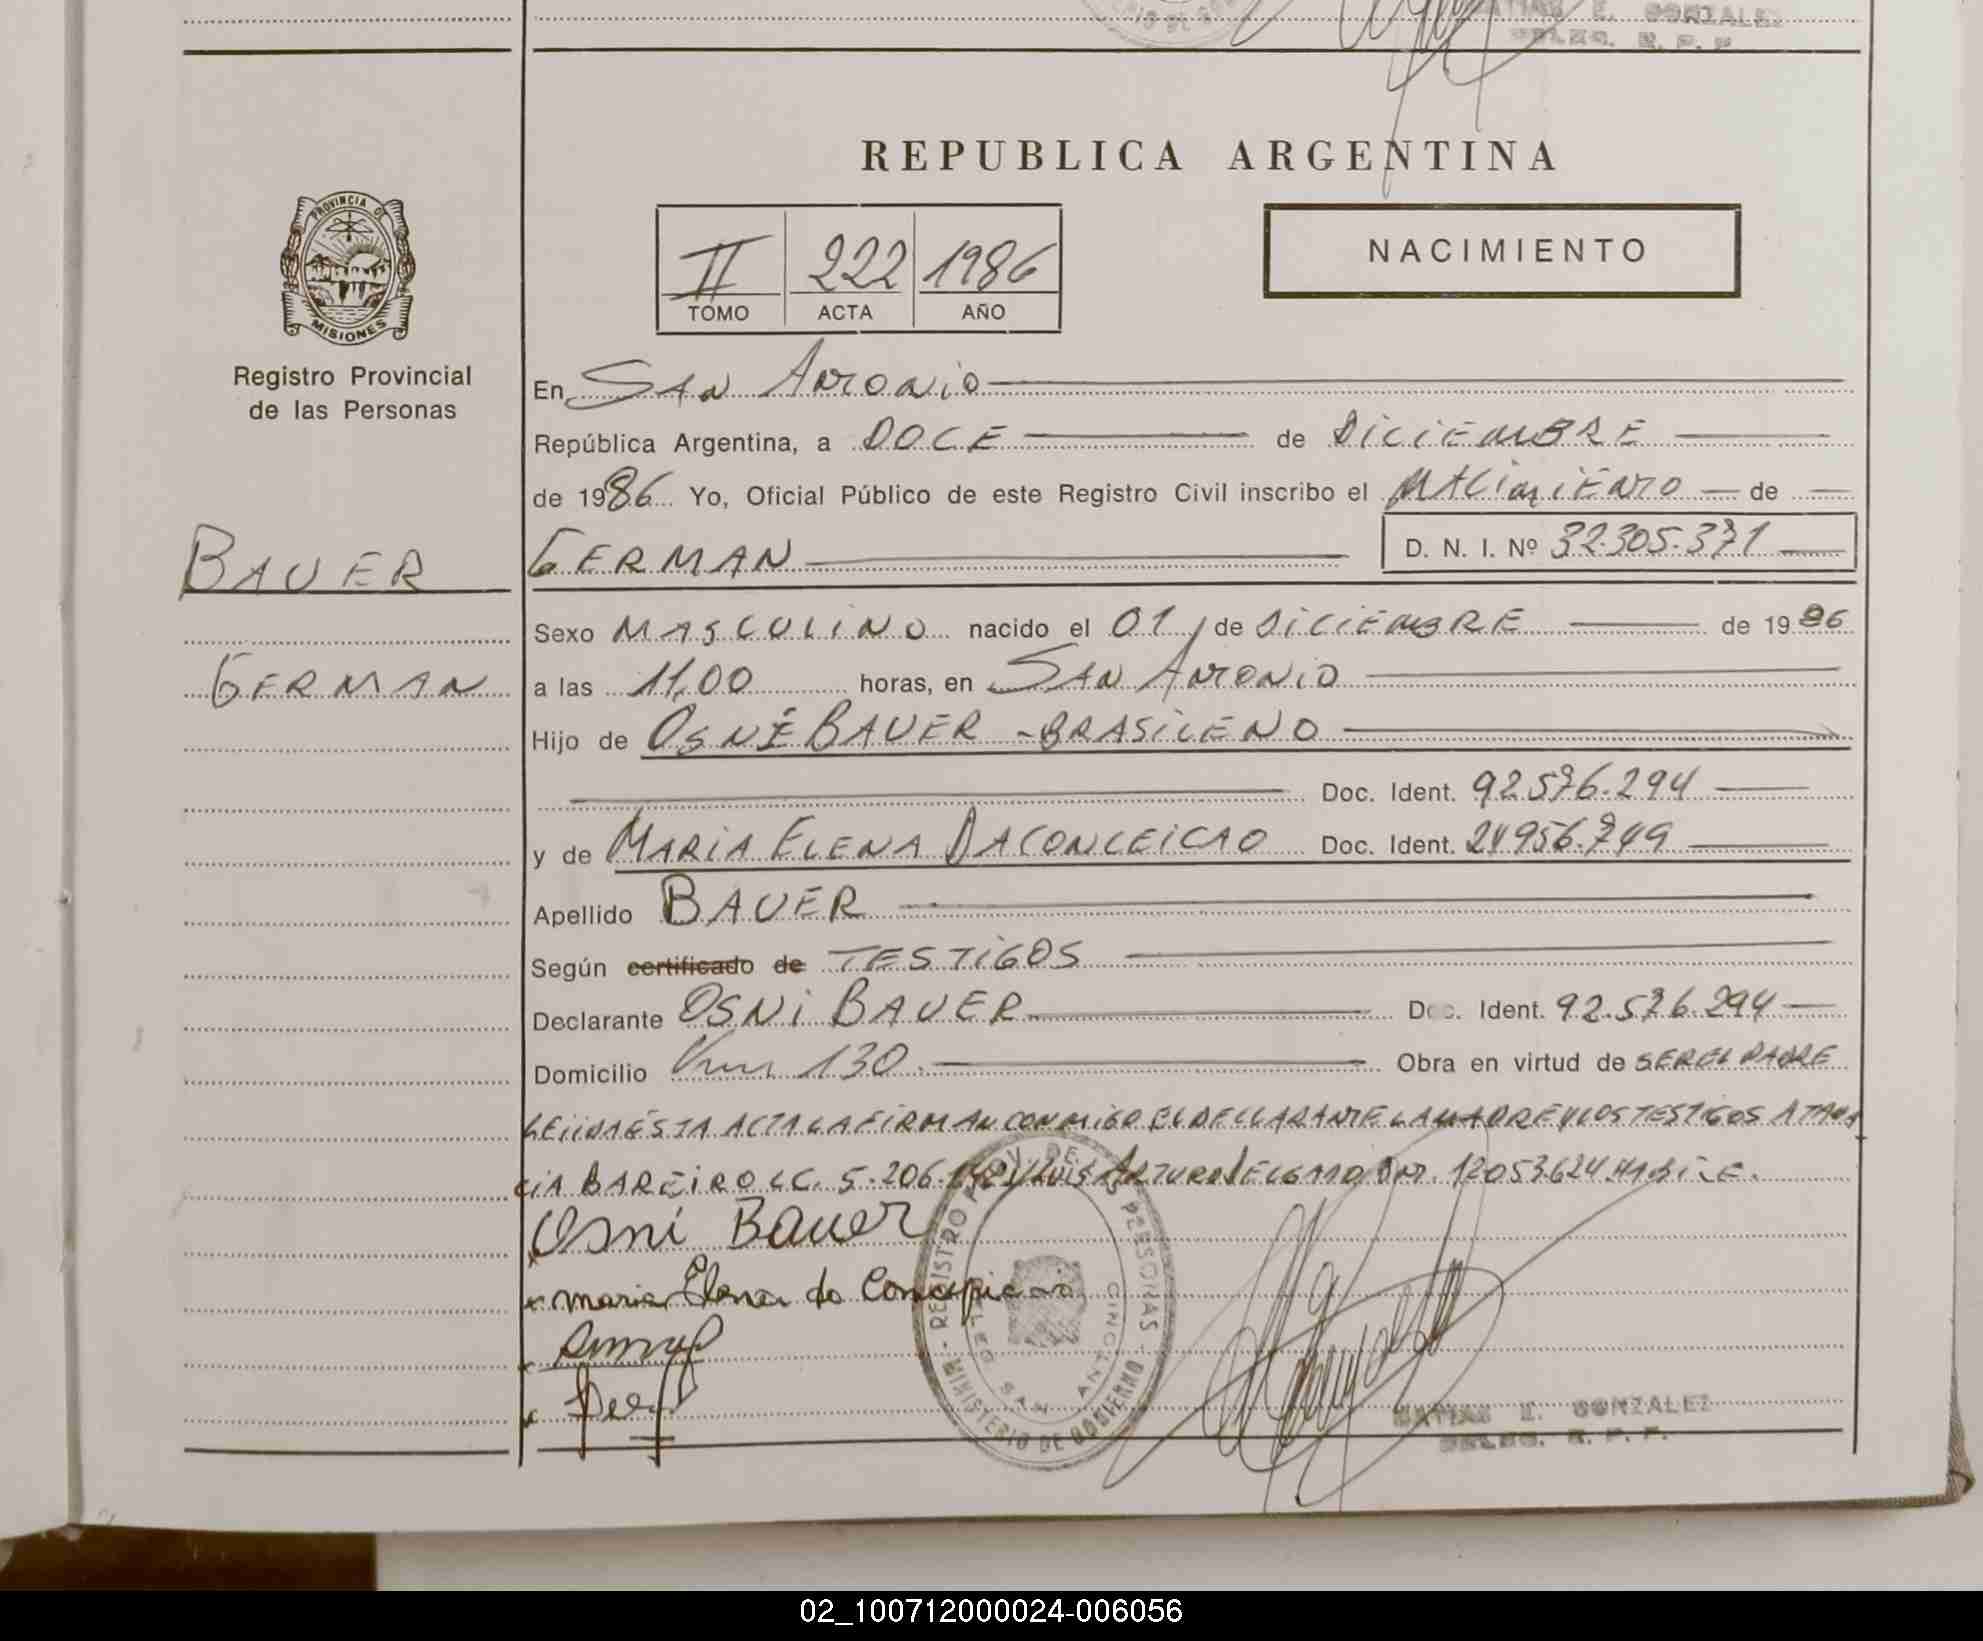 REPUBLICA ARGENTINA
PROVINCIA DE
MISIONES
Registro Provincial
de las Personas
II 222 1986
TOMO ACTA AÑO
NACIMIENTO
En SAN ANTONIO
República Argentina, a DOCE de DICIEMBRE
de 1986 Yo, Oficial Público de este Registro Civil inscribo el NACIMIENTO de
BAUER
GERMAN
D. N. I. Nº 32.305.371
Sexo MASCULINO nacido el 01 de DICIEMBRE de 1986
GERMAN
a las 11,00 horas, en SAN ANTONIO
Hijo de OSNI BAUER - BRASILENO
Doc. Ident. 92.576.294
y de MARIA ELENA DACONCEICAO Doc. Ident. 24956.749
Apellido BAUER
Según certificado de TESTIGOS
Declarante OSNI BAUER Doc. Ident. 92.576.294
Domicilio Km 130. Obra en virtud de SER EL PADRE
LEIIDA ESTA ACTA LA FIRMAN CONMIGO EL DECLARANTE LA MADRE Y LOS TESTIGOS ATANA
CIA BAREIRO LC. 5.206. LUIS ARTURO DNI. 12053624
Osni Bauer
maria Elena da
REGISTRO PROV. DE LAS PERSONAS
MINISTERIO DE GOBIERNO
SAN ANTONIO
MATIAS E. GONZALEZ
DELEG. R. P. P.
02_100712000024-006056